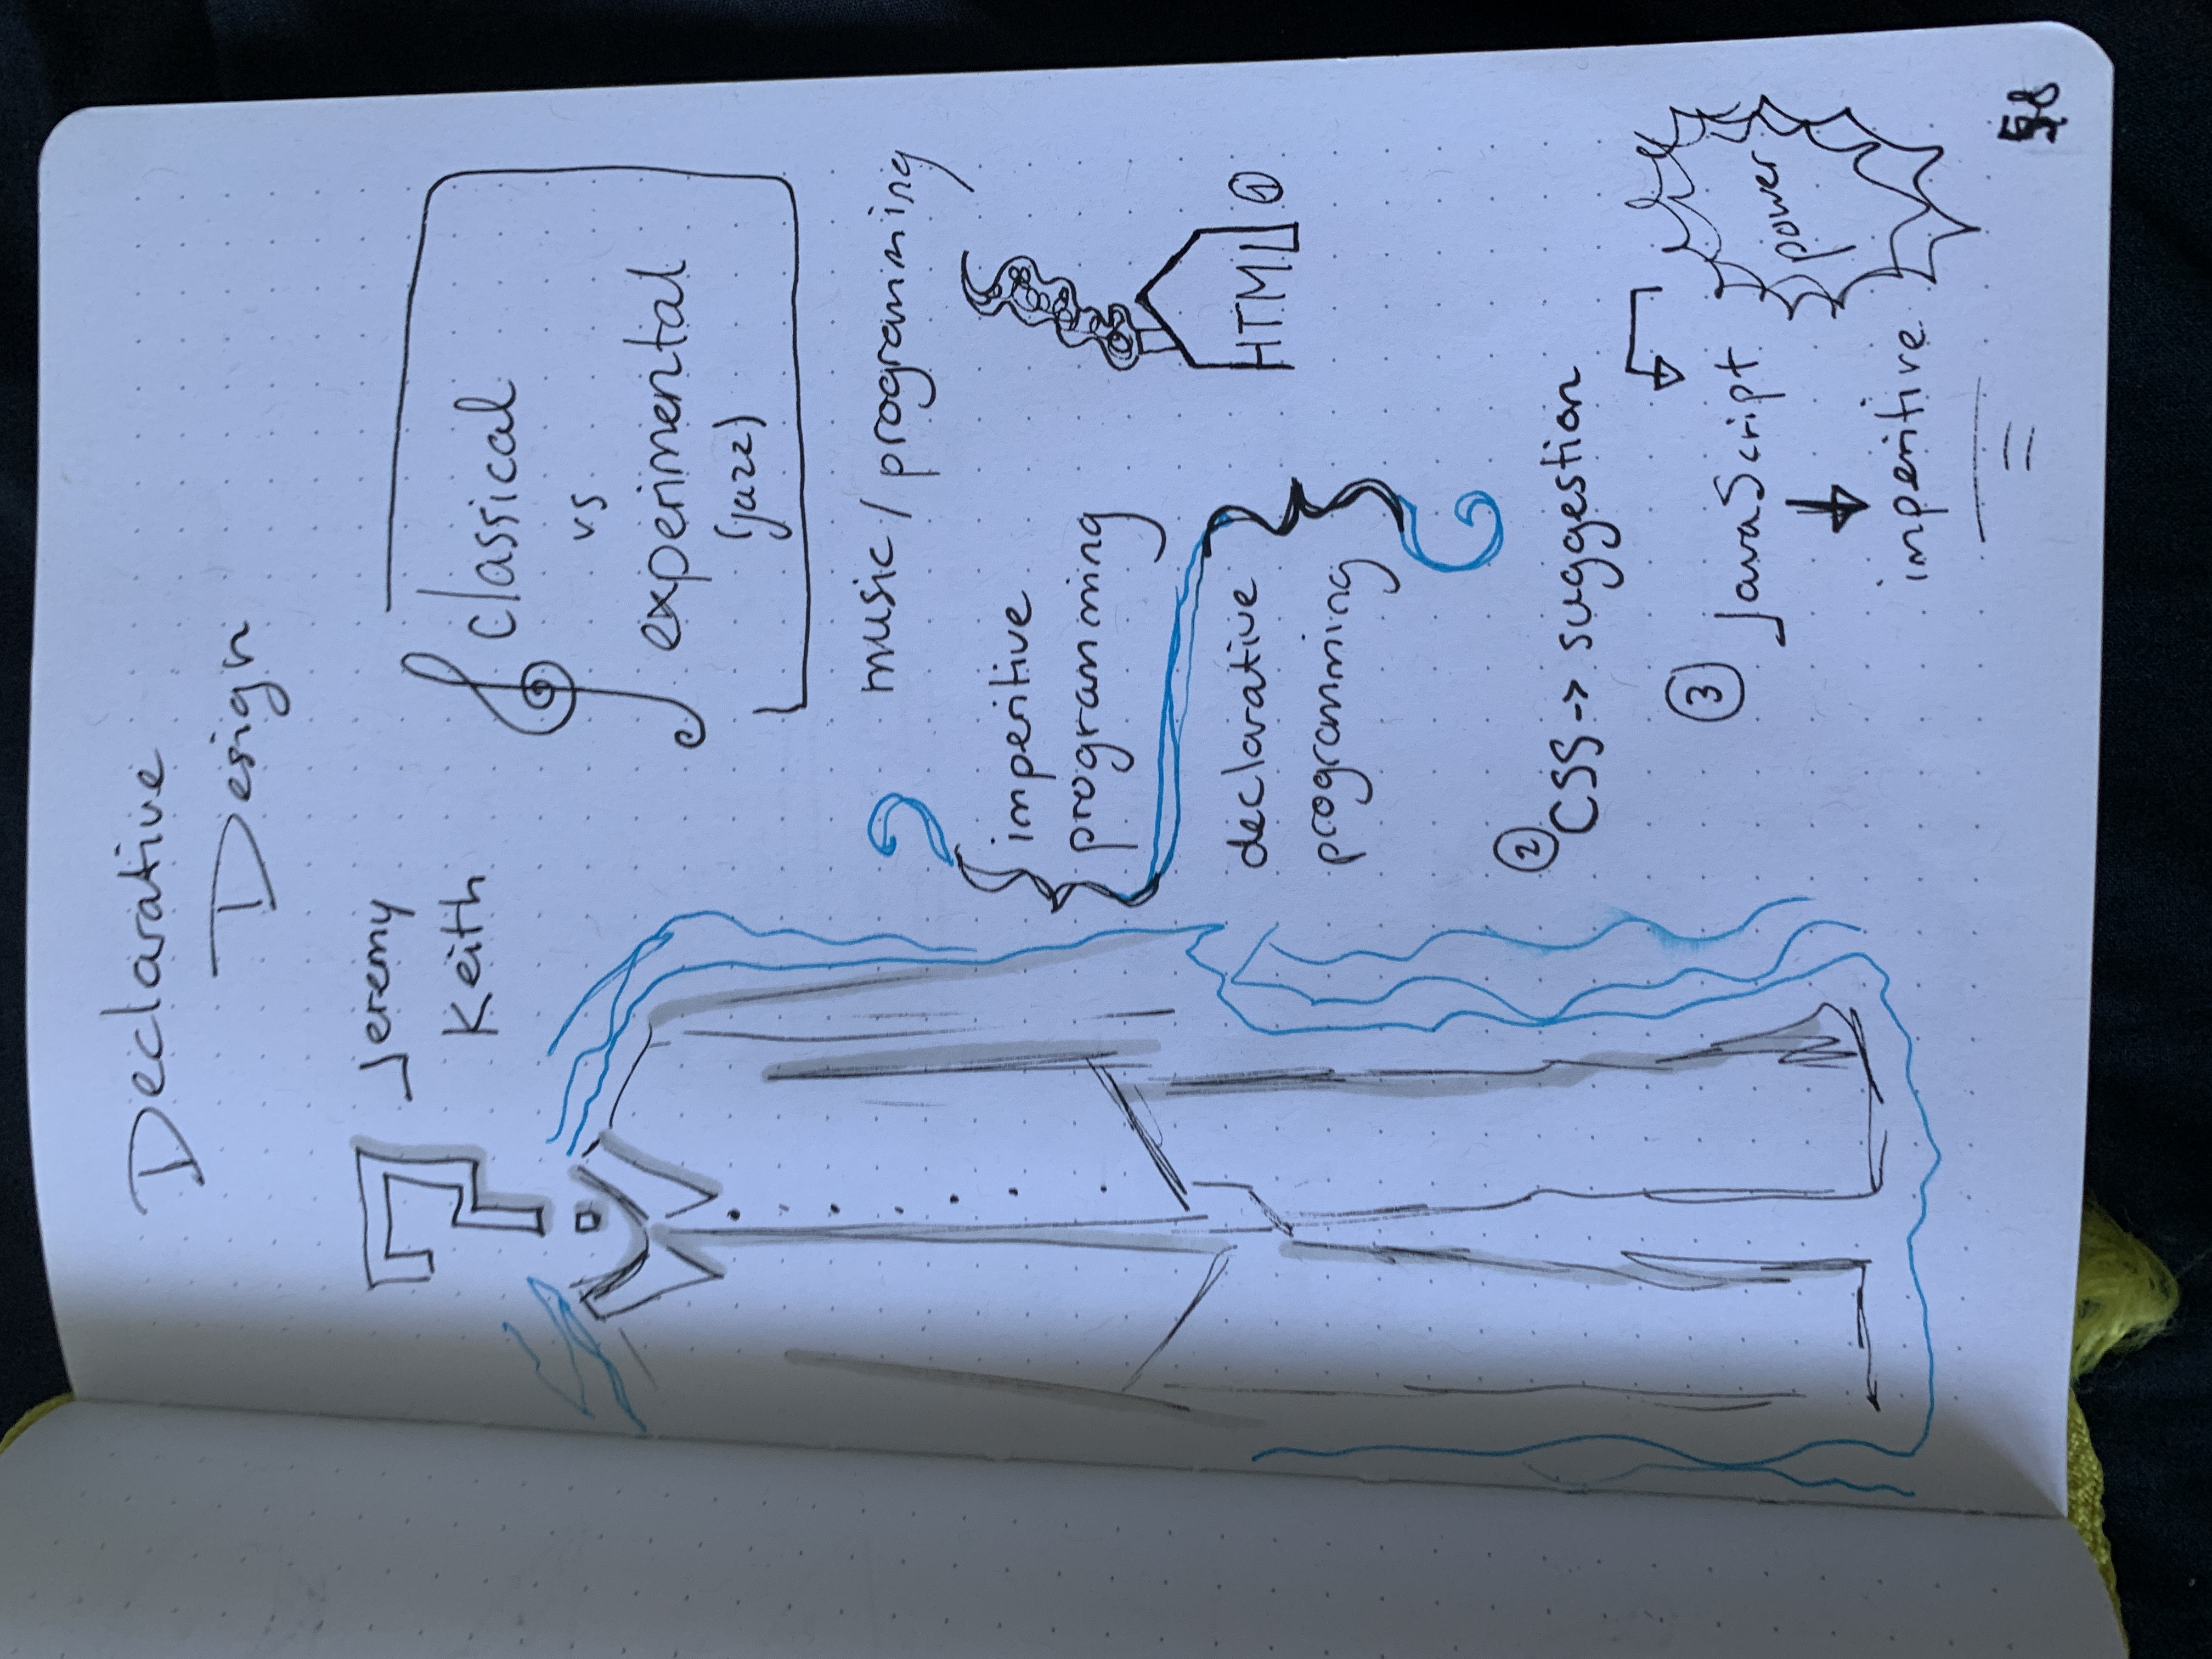 Declarative
Design
Jeremy
Keith
classical
vs
experimental
(jazz)
music / programming
imperitive
programming
declarative
programming
HTML ①
② CSS -> suggestion
③ JavaScript
power
imperitive
58